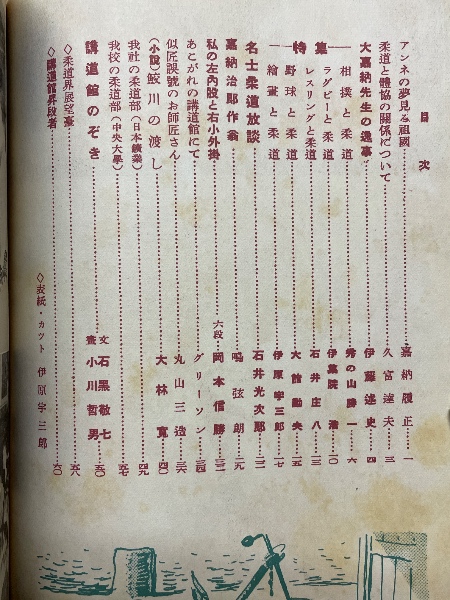 目次
アンネの夢見る祖國……嘉納履正…一
柔道と體協の關係について……久富達夫…三
大嘉納先生の逸事……伊藤述史…四
特集
相撲と柔道……秀の山勝一…六
ラグビーと柔道……伊集院浩…一〇
レスリングと柔道……石井庄八…一三
野球と柔道……大舘勳夫…一五
繪畫と柔道……伊原宇三郎…一七
名士柔道放談……石井光次郎…二二
嘉納治郎作翁……鳴弦朗…二九
私の左內股と右小外掛……六段 岡本信勝…三二
あこがれの講道館にて……グリーソン…三四
似匠誤號のお師匠さん……丸山三造…三六
(小說)鮫川の渡し……大林寬…四〇
我社の柔道部(日本鑛業)……四九
我校の柔道部(中央大學)……五七
講道館のぞき……文 石黑敬七 畫 小川哲男…五〇
◇柔道界展望臺……五八
◇講道館昇段者……六〇
◇表紙・カツト 伊原宇三郎